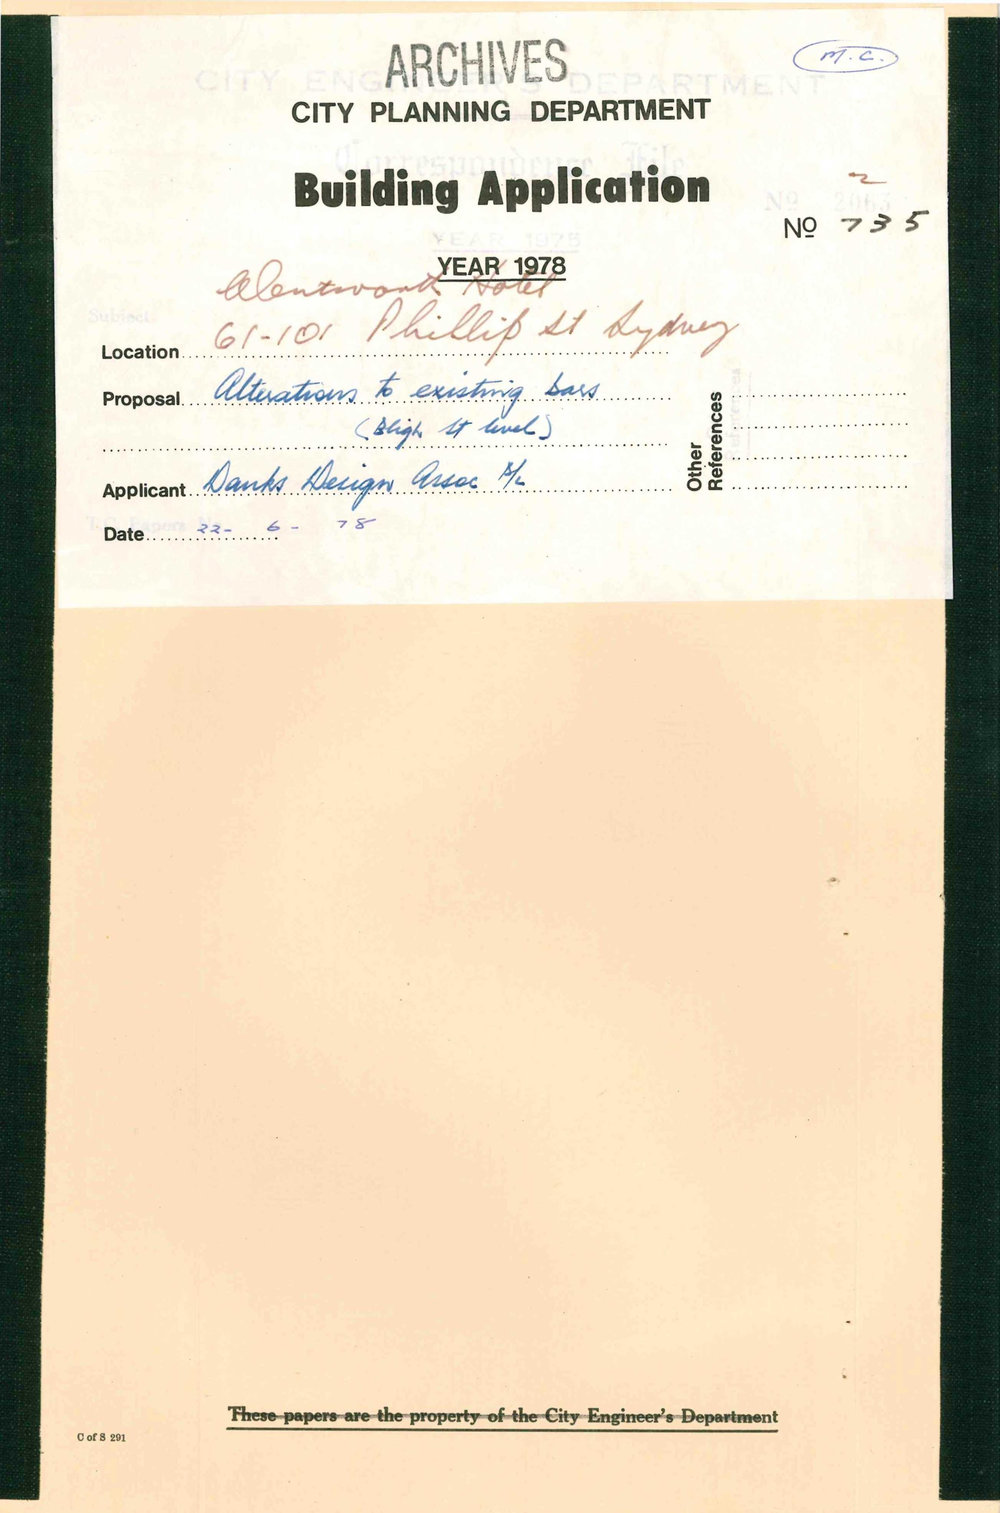 ARCHIVES
M.C.
CITY ENGINEER'S DEPARTMENT
CITY PLANNING DEPARTMENT
Correspondence File
Building Application
2
Nº 2063
Nº 735
YEAR 1975
YEAR 1978
Wentworth Hotel
Subject
Location 61-101 Phillip St Sydney
Proposal Alterations to existing bars
(Bligh St level)
Other References
Applicant Danks Design Assoc P/L
Papers
Date 22-6-78
These papers are the property of the City Engineer's Department
C of S 291